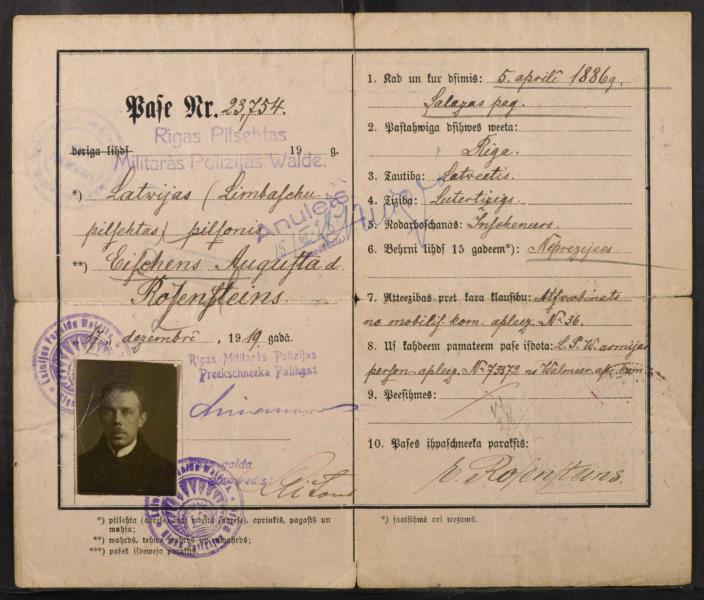 Pase Nr. 23,754.
Rigas Pilsehtas
deriga lihds 19 g.
Militarās Polizijas Walde.
*) Latvijas (Limbaschu
pilsehtas) pilsonis
Anulets
**) Eischens Augusta d.
Rosensteins.
"17" dezembrī, 1919. gadā.
Rigas Militarās Polizijas
Preekschneeka Palihgs:
galda
*) pilsehta (adrese, eela) adrese), aprinkis, pagasts un
mahja;
**) wahrds, tehwa wahrds un uswahrds;
***) pases isdeweja paraksts
1. Kad un kur dsimis: 5. aprilī 1886g.
Salazas pag.
2. Pastahwiga dsihwes weeta:
Riga.
3. Tautiba: Latveetis.
4. Tiziba: Lutertizigs
5. Nodarboschanās: Inscheneers.
6. Behrni lihds 15 gadeem*): Neprezejees
7. Atteezibas pret kara klausibu: Atswabinats
no mobilis. kom. apleez. No 36.
8. Us kahdeem pamateem pase isdota: L.P.W. armijas
person. apleez. No 73372 no Walmeer. apr. kom.
9. Peesihmes:
10. Pases ihpaschneeka paraksts:
E. Rosensteins.
*) jaatsihmē ari wezums.